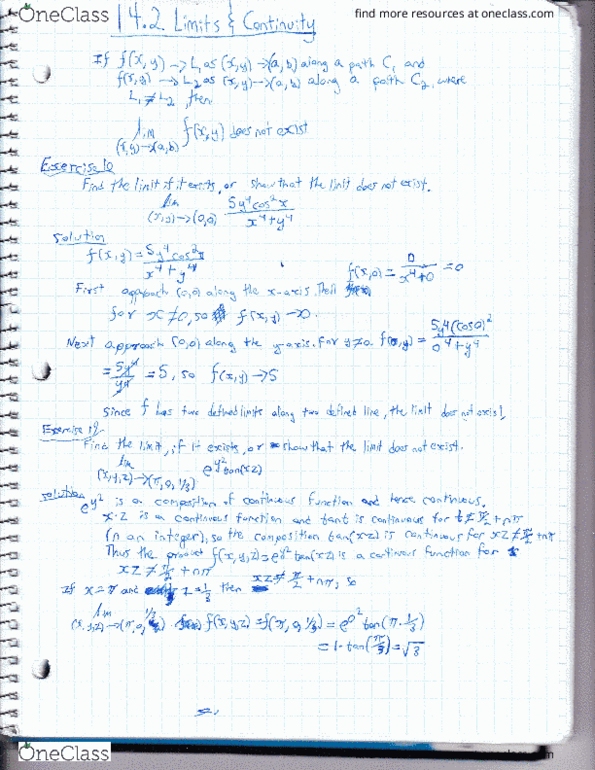 OneClass
find more resources at oneclass.com
14.2 Limits & Continuity
If f(x,y) → L₁ as (x,y) → (a,b) along a path C₁ and
f(x,y) → L₂ as (x,y) → (a,b) along a path C₂, where
L₁ ≠ L₂, then
lim f(x,y) does not exist
(x,y)→(a,b)
Exercise 10
Find the limit if it exists, or show that the limit does not exist.
lim 5y⁴cos²x
(x,y)→(0,0) x⁴+y⁴
Solution
f(x,y) = 5y⁴cos²x / x⁴+y⁴
f(x,0) = 0 / x⁴+0 = 0
First approach (0,0) along the x-axis. Then
for x ≠ 0, so f(x,y) → 0.
Next approach (0,0) along the y-axis. For y≠0 f(0,y) = 5y⁴(cos0)² / 0⁴+y⁴
= 5y⁴ / y⁴ = 5, so f(x,y) → 5
Since f has two defined limits along two defined line, the limit does not exist.
Exercise 19
Find the limit, if it exists, or show that the limit does not exist.
lim e^y² tan(xz)
(x,y,z)→(π,0,1/3)
solution
e^y² is a composition of continuous function and hence continuous.
x·z is a continuous function and tan t is continuous for t ≠ π/2 + nπ
(n an integer), so the composition tan(xz) is continuous for xz ≠ π/2 + nπ
Thus the product f(x,y,z) = e^y² tan(xz) is a continuous function for
xz ≠ π/2 + nπ
If x = π and z = 1/3 then xz ≠ π/2 + nπ, so
lim f(x,y,z) = f(π,0,1/3) = e^0² tan(π·1/3)
(x,y,z)→(π,0,1/3)
= 1·tan(π/3) = √3
OneClass